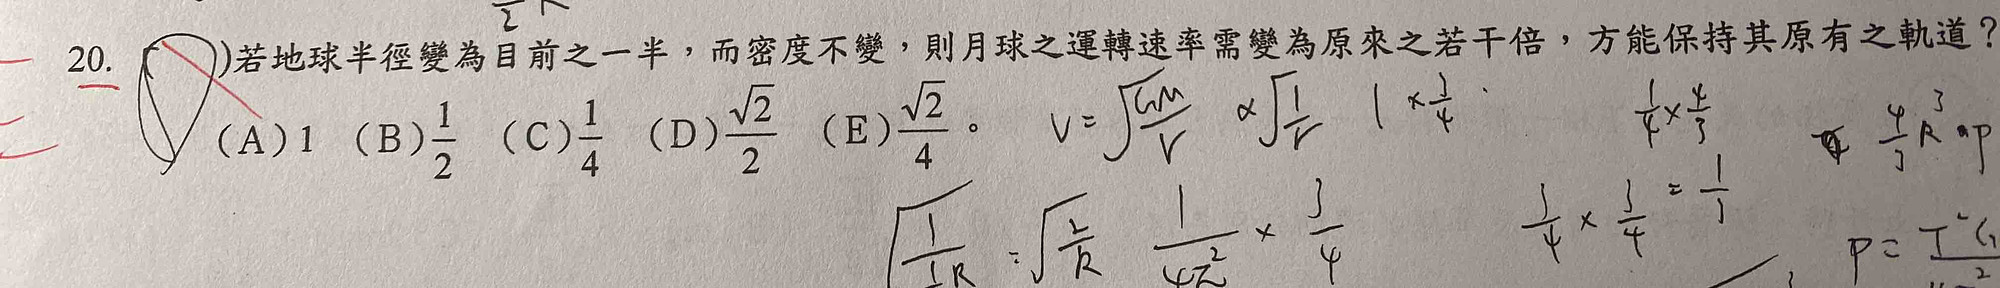 20. ( )若地球半徑變為目前之一半，而密度不變，則月球之運轉速率需變為原來之若干倍，方能保持其原有之軌道？
(A)1 (B)1/2 (C)1/4 (D)√2/2 (E)√2/4。 V=√(GM/r) ∝√(1/r) 1×3/4 1/4×4/3 4/3 R³ρ
3/4×3/4=1/3